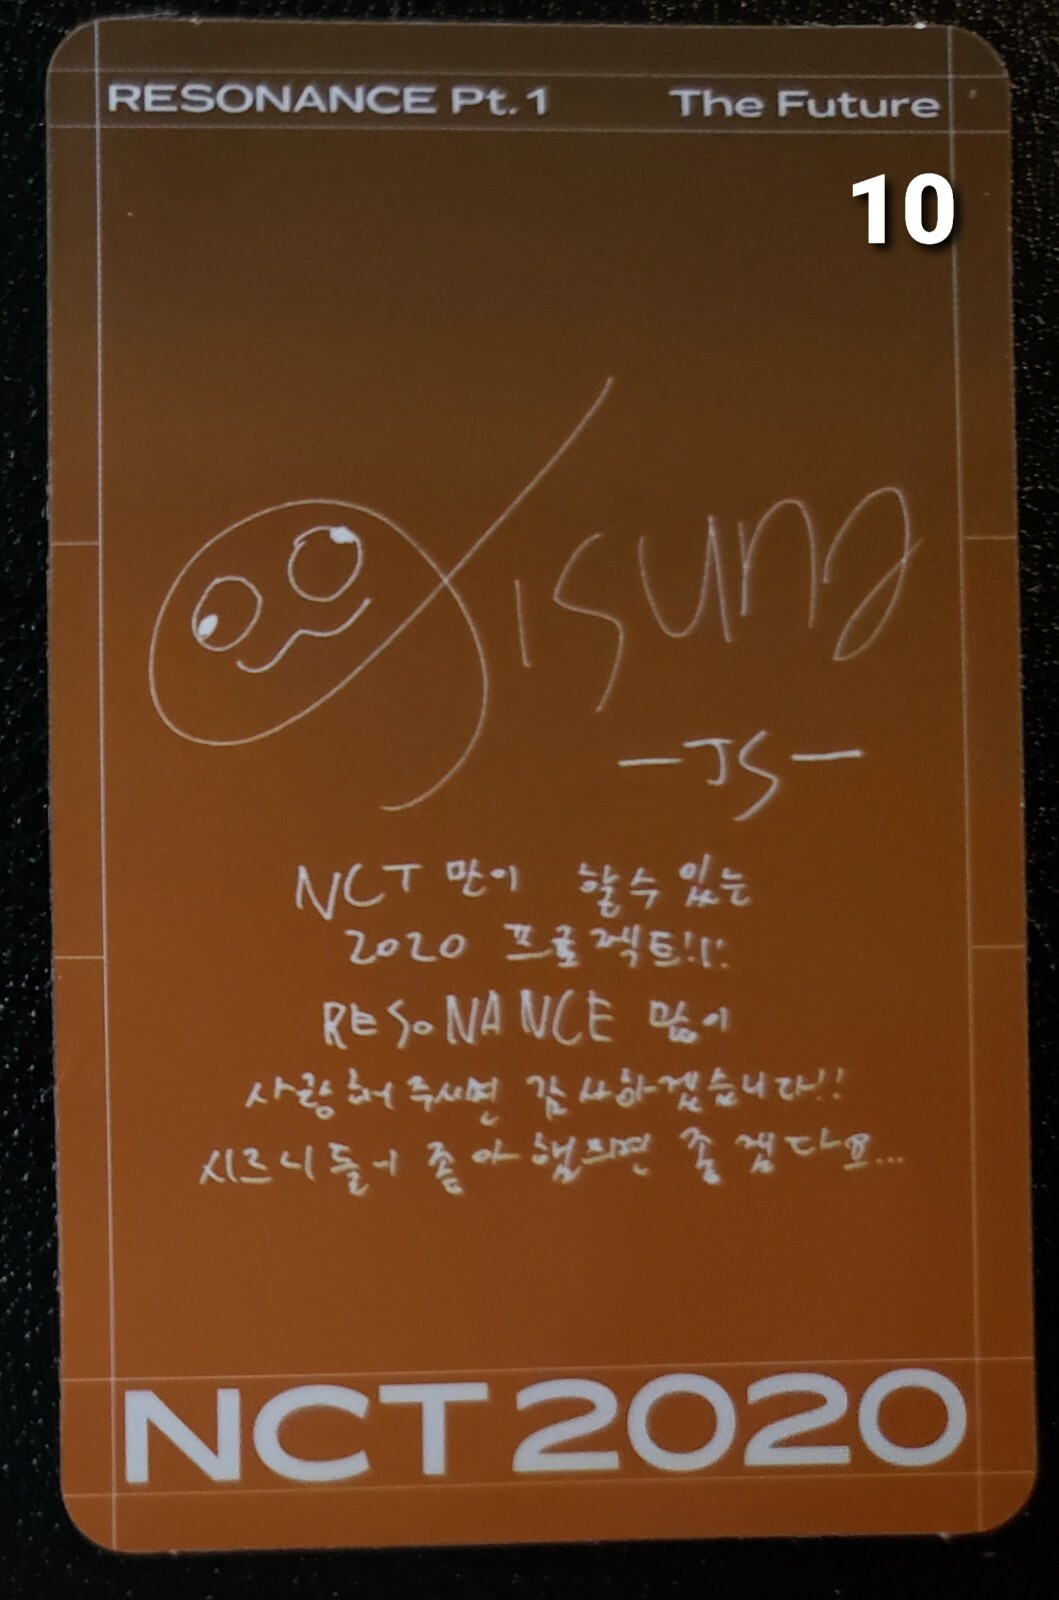 RESONANCE Pt. 1 The Future
10
Jisung
-JS-
NCT 만이 할수 있는
2020 프로젝트!!!
RESONANCE 많이
사랑해주시면 감사하겠습니다!!
시즈니들이 좋아햄쥐면 좋겠다요...
NCT 2020